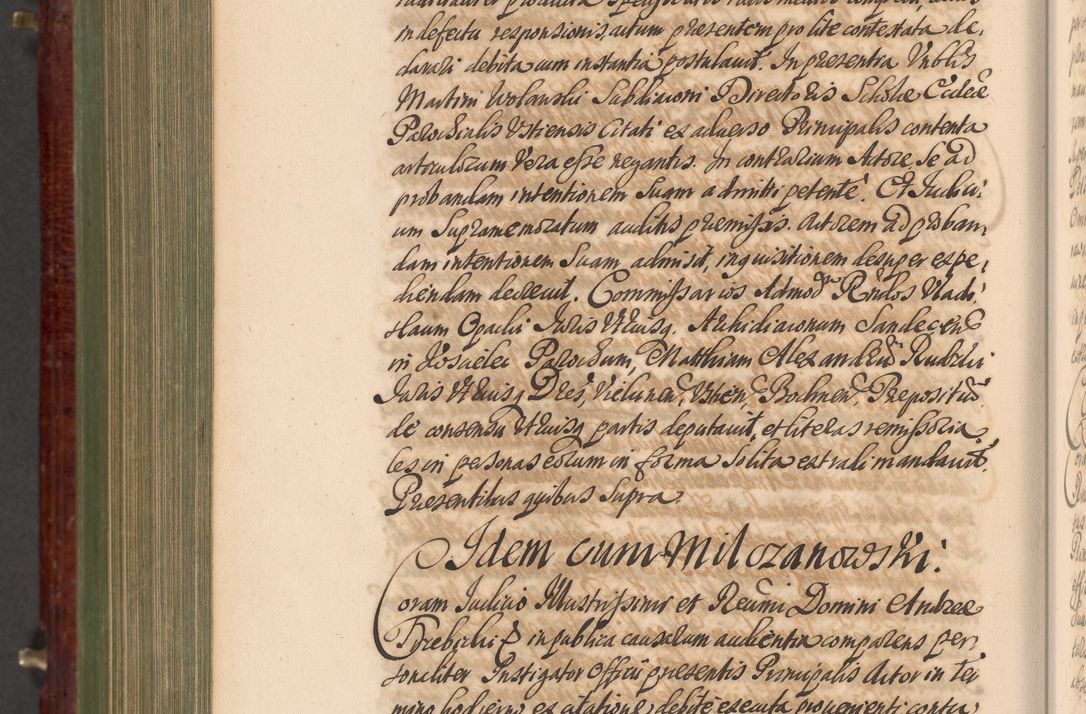 in defectu responsionis actum presentem pro lite contestata de,
clarari debita cum instantia postulavit. In presentia Vnblis
Martini Wolawski Subdiaconi Directoris Scholæ Ecclæ
Parochialis Vstiensis Citati ex adverso Principalis contenta
articulorum Vera esse negantis. In contrarium Actore Se ad
probandam intentionem Suam admitti petente. Et Iudici:
um Supramemoratum auditis premissis. Actorem ad proban,
dam intentionem Suam admisit, inquisitionem desuper expe,
diendam decrevit. Commissarios Admod Rndos Vladi,
slaum Opacki Iuris Vtriusq. Archidiaconum Sandecen
in Parochum, Matthiam Alexandrum Rudzki
Iuris Vtriusq Dres, Vielicien, Vscien, Bochnen, Prepositu
de consensu Vtriusq partis deputavit, et literas remissoria,
les in personas eorum in forma Solita extradi mandavit.
Presentibus quibus Supra.
Idem cum Milczanowski:
Coram Iudicio Illustrissimi et Reumi Domini Andreæ
Trebicki E in publica causarum audientia comparens per,
sonaliter Instigator Officii presentis Principalis Actor in ter
mino hodierno ex citatione debite executa provenienti contra